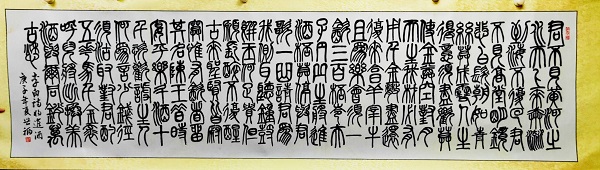 君不見黃河之
水天上來奔流
到海不復回君
不見高堂明鏡
悲白髮朝如青
絲暮成雪人生
得意須盡歡莫
使金樽空對月
天生我材必有
用千金散盡還
復來烹羊宰牛
且為樂會須一
飲三百杯岑夫
子丹丘生將進
酒杯莫停與君
歌一曲請君為
我側耳聽鐘鼓
饌玉不足貴但
願長醉不復醒
古來聖賢皆寂
寞惟有飲者留
其名陳王昔時
宴平樂斗酒十
千恣歡謔主人
何為言少錢徑
須沽取對君酌
五花馬千金裘
呼兒將出換美
酒與爾同銷萬
古愁
李白詩將進酒
庚子年夏